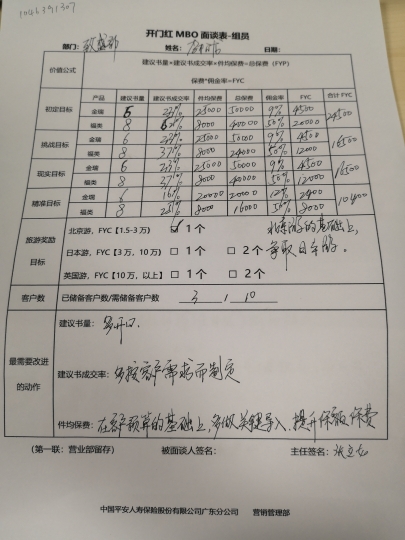 1046391307
开门红 MBO 面谈表-组员
部门: 姓名: 日期:
价值公式 建议书量×建议书成交率×件均保费=总保费（FYP）
保费*佣金率=FYC
产品 建议书量 建议书成交率 件均保费 总保费 佣金率 FYC 合计 FYC
初定目标 金瑞 6 25000 50000 9% 4500 24500
福类 8 8000 40000 50% 20000
挑战目标 金瑞 6 25000 50000 9% 4500 16500
福类 8 37% 8000 24000 50% 12000
现实目标 金瑞 6 25000 50000 9% 4500 16500
福类 8 37% 8000 40000 50% 12000
精准目标 金瑞 6 16% 20000 20000 12% 2400 10400
福类 8 25% 8000 16000 50% 8000
旅游奖励目标 北京游，FYC【1.5-3 万） ☑ 1 个 北京游的基础上，
日本游，FYC【3 万，10 万） □ 1 个 □ 2 个 争取日本游。
英国游，FYC【10 万，以上】 □ 1 个 □ 2 个
客户数 已储备客户数/需储备客户数 3 / 10
最需要改进的动作
建议书量： 多开口.
建议书成交率： 多按客户需求而制定
件均保费： 在客户预算的基础上，多做关键导入，提升保额，保费
（第一联：营业部留存） 被面谈人签名： 主任签名：
中国平安人寿保险股份有限公司广东分公司 营销管理部